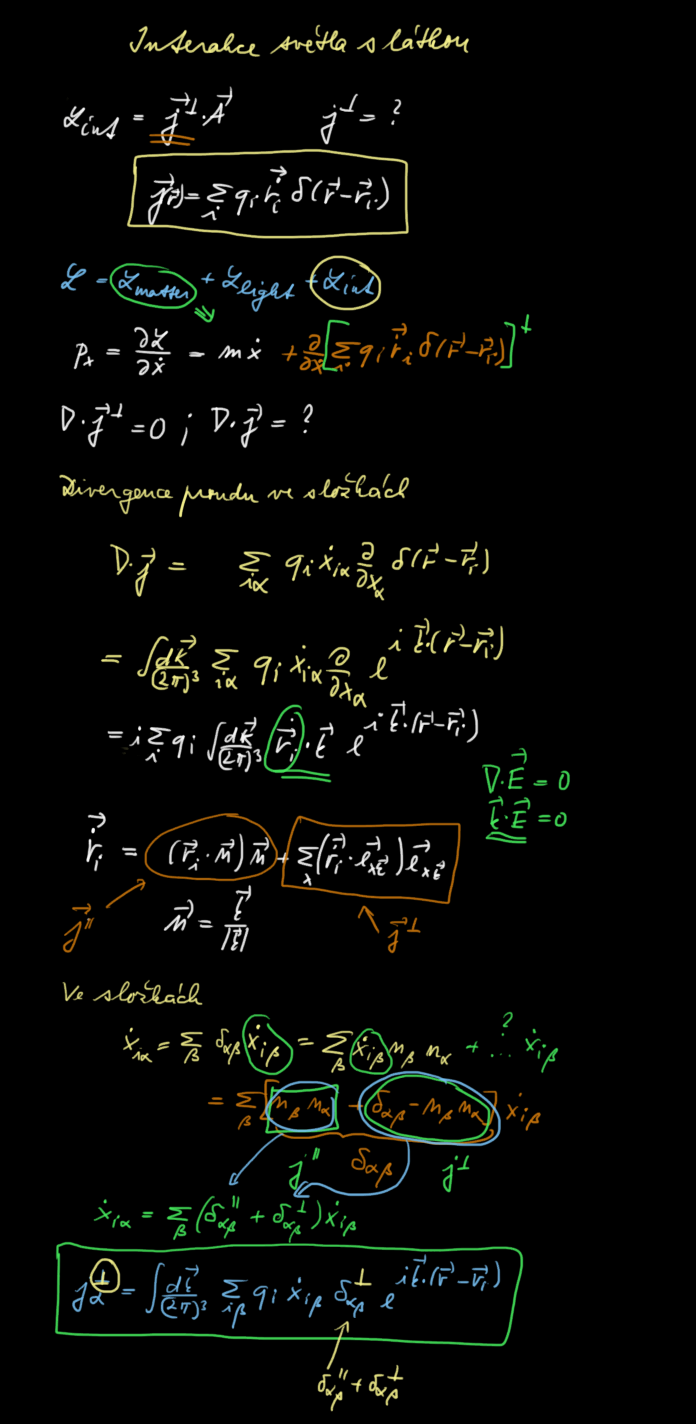 Interakce světla s látkou
ℒ_int = j⃗^⊥·A⃗    j^⊥ = ?
j⃗(r⃗) = Σ_i q_i ṙ⃗_i δ(r⃗−r⃗_i)
ℒ = ℒ_matter + ℒ_light + ℒ_int
p_x = ∂ℒ/∂ẋ = mẋ + ∂/∂ẋ [Σ_i q_i ṙ⃗_i δ(r⃗−r⃗_i)]^⊥
∇·j⃗^⊥ = 0 ; ∇·j⃗ = ?
Divergence proudu ve složkách
∇·j⃗ = Σ_iα q_i ẋ_iα ∂/∂x_α δ(r⃗−r⃗_i)
= ∫ dk⃗/(2π)³ Σ_iα q_i ẋ_iα ∂/∂x_α e^{i k⃗·(r⃗−r⃗_i)}
= i Σ_i q_i ∫ dk⃗/(2π)³ ṙ⃗_i · k⃗ e^{i k⃗·(r⃗−r⃗_i)}
∇·E⃗ = 0
k⃗·E⃗ = 0
ṙ⃗_i = (r⃗_i·n⃗)n⃗ + Σ_λ(ṙ⃗_i·e⃗_λk⃗)e⃗_λk⃗
j⃗^∥    n⃗ = k⃗/|k⃗|    j⃗^⊥
Ve složkách
ẋ_iα = Σ_β δ_αβ ẋ_iβ = Σ_β ẋ_iβ n_β n_α + ...? ẋ_iβ
= Σ_β [n_β n_α + δ_αβ − n_β n_α] ẋ_iβ
j^∥    δ_αβ    j^⊥
ẋ_iα = Σ_β (δ_αβ^∥ + δ_αβ^⊥) ẋ_iβ
j_α^⊥ = ∫ dk⃗/(2π)³ Σ_iβ q_i ẋ_iβ δ_αβ^⊥ e^{i k⃗·(r⃗−r⃗_i)}
δ_αβ^∥ + δ_αβ^⊥